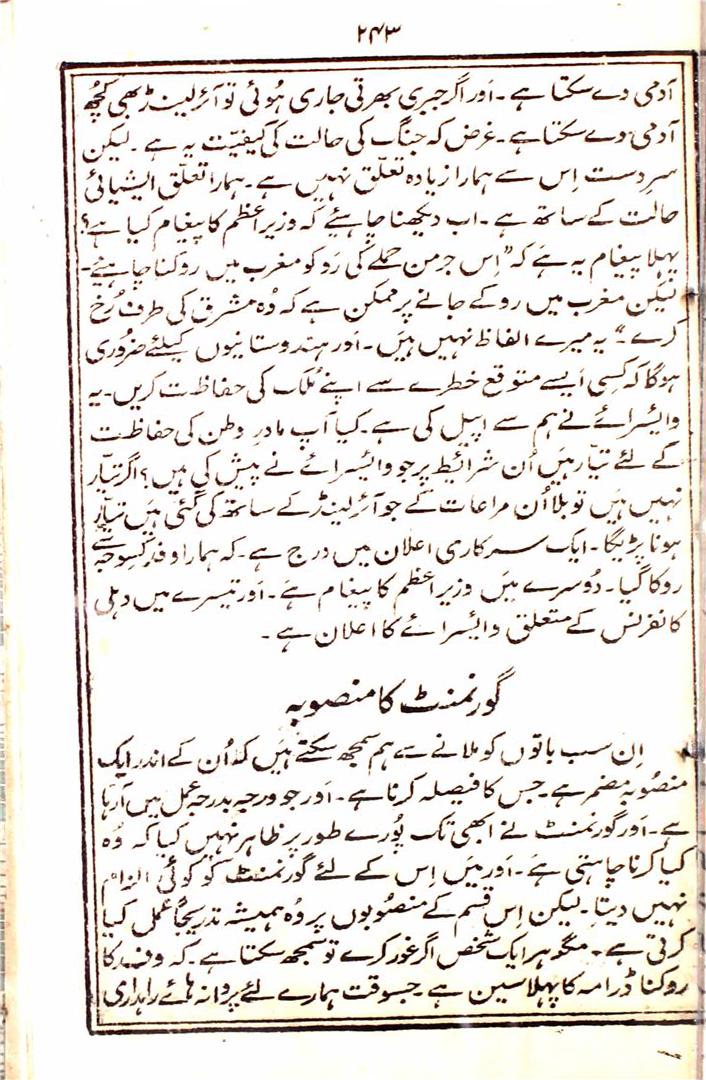 ۲۴۳
آدمی دے سکتا ہے۔ اَور اگر جبری بھرتی جاری ہُوئی تو آئرلینڈ بھی کچھ
آدمی دے سکتا ہے۔ غرض کہ جنگ کی حالت کی کیفیّت یہ ہے۔ لیکن
سرِدست اِس سے ہمارا زیادہ تعلّق نہیں ہے۔ ہمارا تعلّق ایشیائی
حالت کے ساتھ ہے۔ اب دیکھنا چاہیئے کہ وزیرِاعظم کا پیغام کیا ہے؟
پہلا پیغام یہ ہے کہ ”اِس جرمن حملے کی رَو کو مغرب میں روکنا چاہیئے۔
لیکن مغرب میں روکے جانے پر ممکن ہے کہ وُہ مشرق کی طرف رُخ
کرے۔“ یہ میرے الفاظ نہیں ہیں۔ اَور ہندوستانیوں کیلئے ضرُوری
ہوگا کہ کِسی اَیسے متوقع خطرے سے اپنے مُلک کی حفاظت کریں۔ یہ
وائسرائے نے ہم سے اپیل کی ہے۔ کیا آپ مادرِ وطن کی حفاظت
کے لئے تیّار ہیں اُن شرائط پر جو وائسرائے نے پیش کی ہیں؟ اگر تیّار
نہیں ہیں تو بلا اُن مراعات کے جو آئرلینڈ کے ساتھ کی گئی ہیں تیّار
ہونا پڑیگا۔ ایک سرکاری اعلان میں درج ہے۔ کہ ہمارا وفد کِس وجہ سے
روکا گیا۔ دُوسرے میں وزیرِاعظم کا پیغام ہے۔ اَور تیسرے میں دہلی
کانفرنس کے متعلق وائسرائے کا اعلان ہے۔
گورنمنٹ کا منصوبہ
اِن سب باتوں کو ملانے سے ہم سمجھ سکتے ہیں کہ اُن کے اندر ایک
منصُوبہ مضمر ہے۔ جس کا فیصلہ کرنا ہے۔ اَور جو درجہ بدرجہ عمل میں آرہا
ہے۔ اَور گورنمنٹ نے ابھی تک پُورے طور پر ظاہر نہیں کیا کہ وُہ
کیا کرنا چاہتی ہے۔ اَور میں اِس کے لئے گورنمنٹ کو کوئی الزام
نہیں دیتا۔ لیکن اِس قسم کے منصُوبوں پر وُہ ہمیشہ تدریجاً عمل کیا
کرتی ہے۔ مگر ہر ایک شخص اگر غور کرے تو سمجھ سکتا ہے۔ کہ وفد کا
روکنا ڈرامہ کا پہلا سین ہے۔ جسوقت ہمارے لئے پروانہ ہائے راہداری